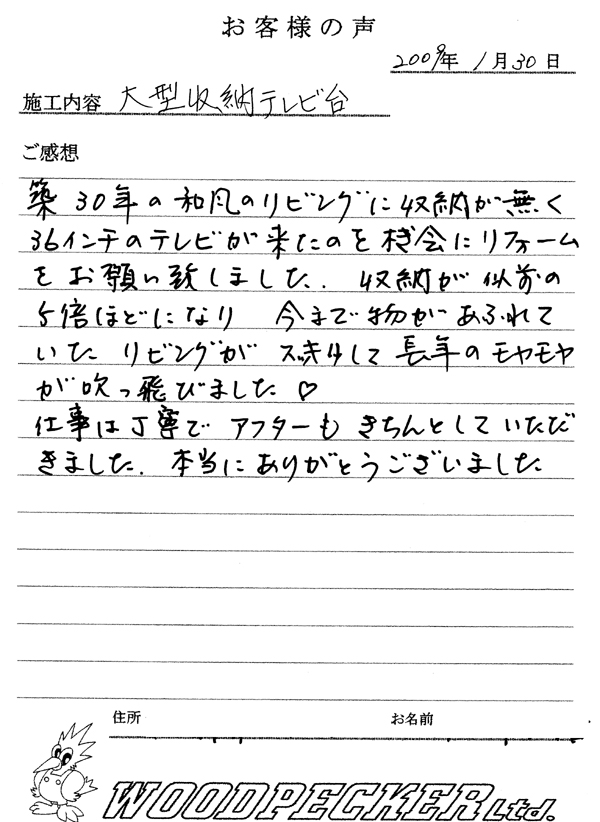 お客様の声
2009年 1月30日
施工内容 大型収納テレビ台
ご感想
築30年の和風のリビングに収納が無く
36インチのテレビが来たのを機会にリフォーム
をお願い致しました. 収納が以前の
5倍ほどになり 今まで物があふれて
いた リビングが スッキリして 長年のモヤモヤ
が吹っ飛びました♡
仕事は丁寧で アフターも きちんとしていただ
きました. 本当にありがとうございました
住所 お名前
WOODPECKER Ltd.